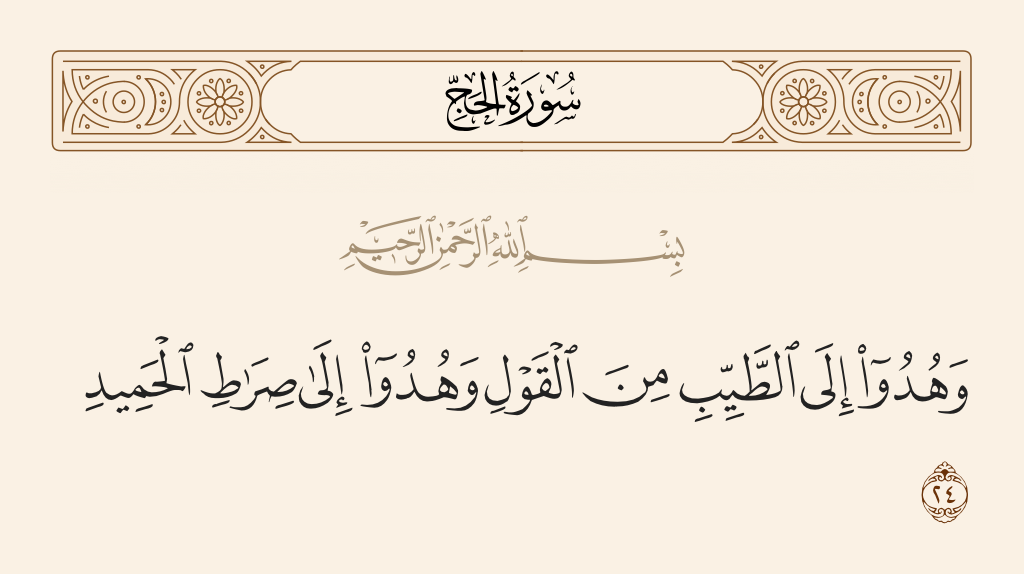 سُورَةُ الحَجِّ
بِسْمِ ٱللَّهِ ٱلرَّحْمَٰنِ ٱلرَّحِيمِ
وَهُدُوٓا۟ إِلَى ٱلطَّيِّبِ مِنَ ٱلْقَوْلِ وَهُدُوٓا۟ إِلَىٰ صِرَٰطِ ٱلْحَمِيدِ
٢٤